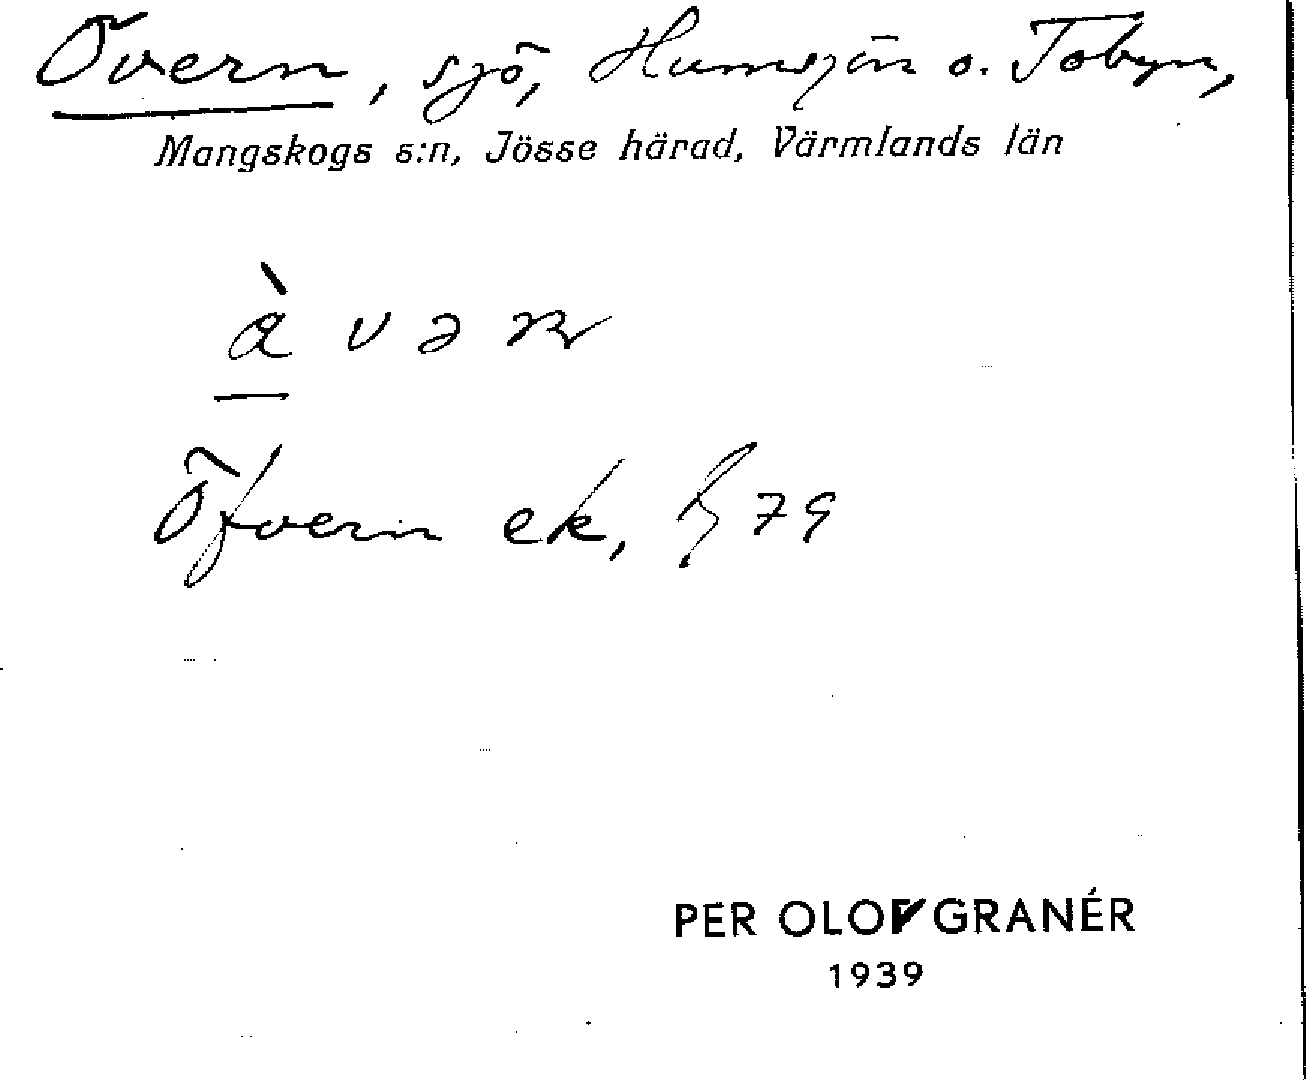 Övern, sjö, Humsjön o. Tobyn,
Mangskogs s:n, Jösse härad, Värmlands län
Öfvern ek, 79
PER OLOF GRANÉR
1939